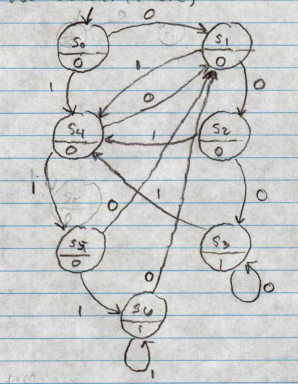 0
S0
0
S1
0
1
1
0
0
S4
0
1
S2
0
1
0
1
S5
0
0
S3
1
0
0
1
S6
1
1